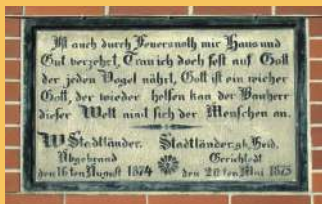 Ist auch durch Feuersnoth mir Haus und
Gut verzehrt, Trau ich doch fest auf Gott
der jeden Vogel nährt, Gott ist ein reicher
Gott, der wieder helfen kan der Bauherr
dieser Welt nimt sich der Menschen an.
W Stadtländer. Stadtländer, gb, Heid,
Abgebrand Gerichtedt
den 16 ten August 1874 den 20 ten Mai 1875